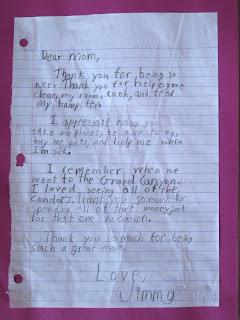 Dear mom,
Thank you for being so
nice. Thank you for help me
clean my room, cook, and feed
my hampster.
I appreciate how you
take me places, be nice to me,
buy me pets, and help me when
I'm sick.
I remember when we
went to the Grand Canyon.
I loved seeing all of the
condors. Thank you so much for
spending all of that money just
for that one vacation.
Thank you so much for being
such a great mom.
Love,
Jimmy